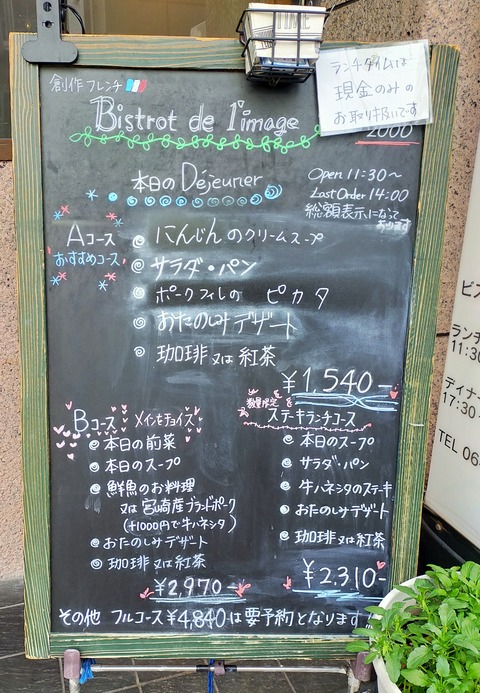 創作フレンチ
Bistrot de l'image
ランチタイムは
現金のみの
お取り扱いです
2000
本日のDéjeuner
Open 11:30～
Last Order 14:00
総額表示になって
おります
Aコース
おすすめコース
にんじんのクリームスープ
サラダ・パン
ポークフィレの ピカタ
おたのしみデザート
珈琲又は紅茶
¥1,540-
Bコース メインをチョイス
本日の前菜
本日のスープ
鮮魚のお料理
又は宮崎産ブランドポーク
(+1000円で牛ハネシタ)
おたのしみデザート
珈琲又は紅茶
¥2,970-
数量限定
ステーキランチコース
本日のスープ
サラダ・パン
牛ハネシタのステーキ
おたのしみデザート
珈琲又は紅茶
¥2,310-
その他 フルコース¥4,840は要予約となります
ビス
ランチ
11:30
ディナー
17:30
TEL 06